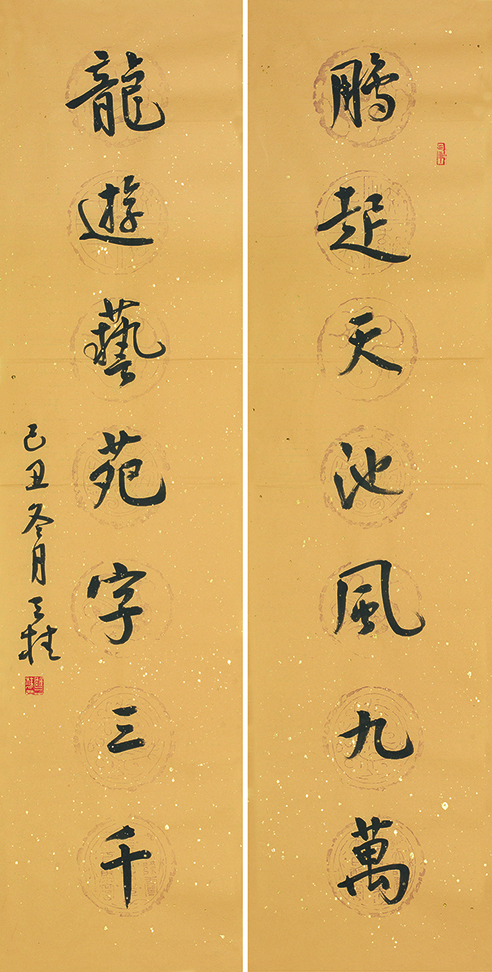 鵬起天池風九萬
龍遊藝苑字三千
己丑冬月